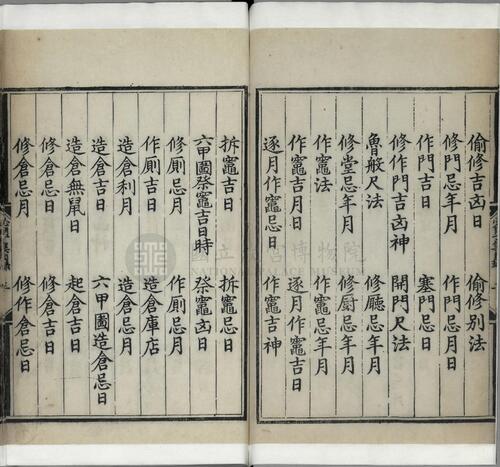 偷修吉凶日 偷修別法
修門忌年月 作門忌月日
作門吉日 塞門忌日
修作門吉凶神 開門尺法
魯般尺法 修廳忌年月
修堂忌年月 修厨忌年月
作竈法 作竈忌年月
作竈吉月日 逐月作竈吉日
逐月作竈忌日 作竈吉神
拆竈吉日 拆竈忌日
六甲圖祭竈吉日時 祭竈凶日
修厠忌月 作厠忌月
作厠吉日 造倉庫店
造倉利月 造倉忌月
造倉吉日 六甲圖造倉忌日
造倉無鼠日 起倉吉日
修倉忌日 修倉吉日
修倉忌月 修作倉忌日
國立故宮博物院